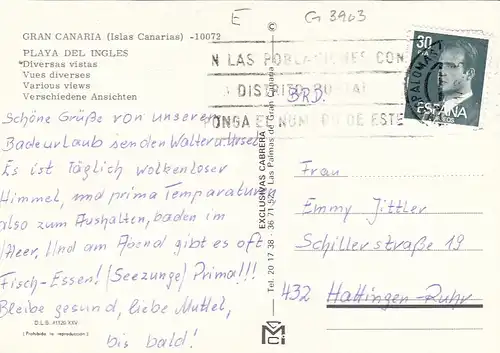 E
G 3903
©
GRAN CANARIA (Islas Canarias) -10072
PLAYA DEL INGLES
Diversas vistas
Vues diverses
Various views
Verschiedene Ansichten
N LAS POBLACIONES CON
DISTRITO POSTAL
PONGA EL NUMERO DE ESTE
30
ESPAÑA
CORREOS
BRD.
Schöne Grüße von unserem
Badeurlaub senden Walter u. Ursel
Es ist täglich wolkenloser
Himmel, und prima Temparaturen
also zum Aushalten, baden im
Meer. Und am Abend gibt es oft
Fisch-Essen! (Seezunge) Prima!!!
Bleibe gesund, liebe Muttel,
bis bald!
EXCLUSIVAS CABRERA
Tel. 20 17 38 - 36 71 52 Las Palmas de Gran Canaria
Frau
Emmy Jittler
Schillerstraße 19
432 Hattingen-Ruhr
(Prohibida la reproducción)